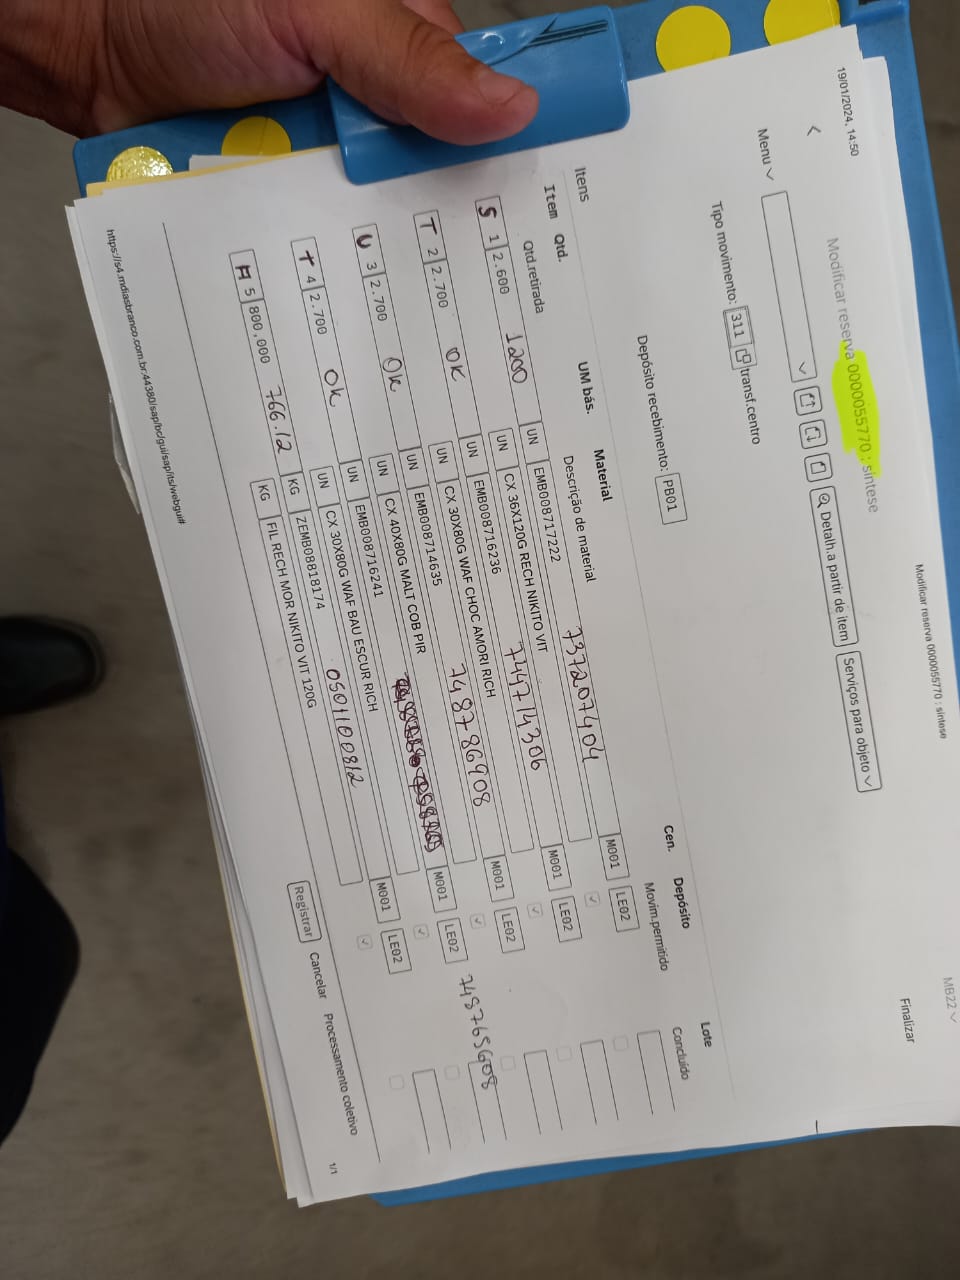 Modificar reserva 0000055770 : síntese
MB22
19/01/2024, 14:50
Modificar reserva 0000055770 : síntese
Finalizar
Menu
Detalh.a partir de item
Serviços para objeto
Tipo movimento: 311 transf.centro
Depósito recebimento: PB01
Itens
Item Qtd. UM bás. Material Cen. Depósito Lote
Qtd.retirada Descrição de material Movim.permitido Concluído
S 1 2.600 1200 UN EMB008717222 737207404 M001 LE02
UN CX 36X120G RECH NIKITO VIT
T 2 2.700 OK UN EMB008716236 744714306 M001 LE02
UN CX 30X80G WAF CHOC AMORI RICH
U 3 2.700 OK UN EMB008714635 748786908 M001 LE02
UN CX 40X80G MALT COB PIR
T 4 2.700 OK UN EMB008716241 M001 LE02 748765608
UN CX 30X80G WAF BAU ESCUR RICH
A 5 800,000 766.12 KG ZEMB08818174 0501100812 M001 LE02
KG FIL RECH MOR NIKITO VIT 120G
Registrar Cancelar Processamento coletivo
1/1
https://s4.mdiasbranco.com.br:44380/sap/bc/gui/sap/its/webgui#